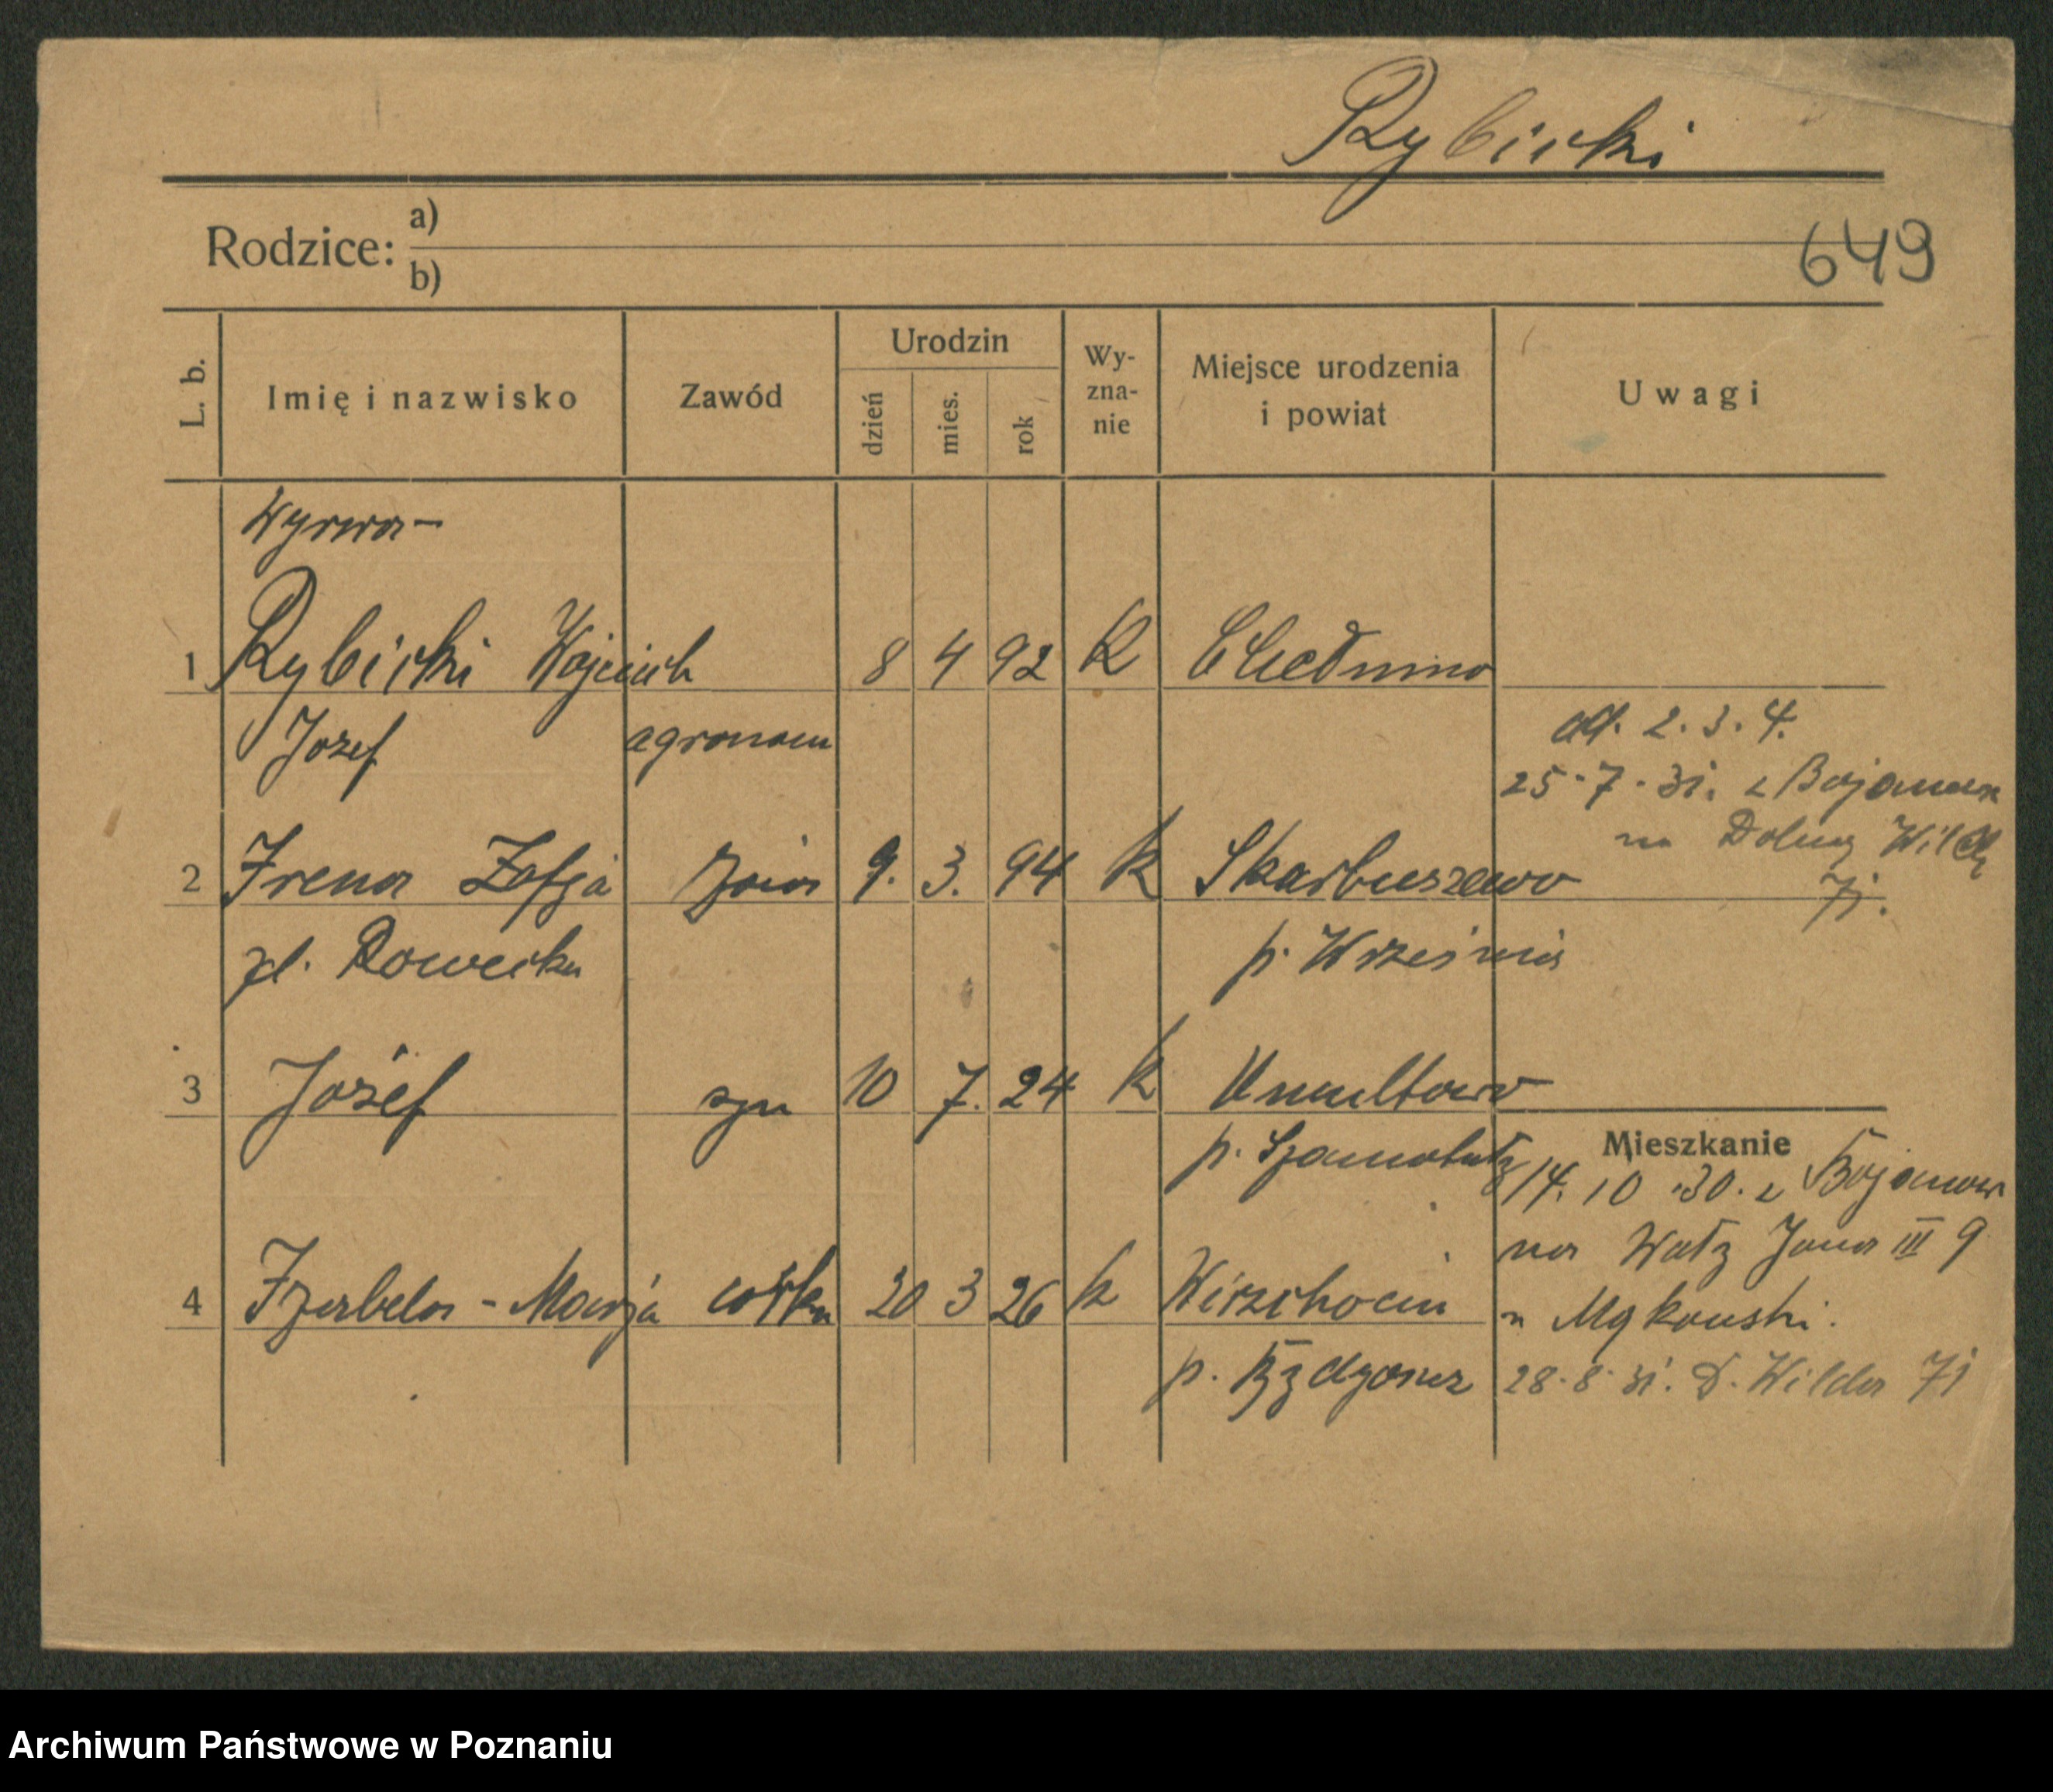 Rybicki
Rodzice: a)
b)
649
L. b. Imię i nazwisko Zawód Urodzin dzień mies. rok Wy-zna-nie Miejsce urodzenia i powiat Uwagi
Wyrwa-
1 Rybicki Wojciech 8 4 92 K Chełmno
Józef agronom
ad. 2. 3. 4.
25.7.31. z Bojanowa
na Dolną Wildę
71.
2 Irena Zofja żona 9. 3. 94 k Skarbuszewo
zd. Rowecka p. Września
3 Józef syn 10 7. 24 k Umultowo
p. Szamotuły
Mieszkanie
14.10.30. z Bojanowa
na Wały Jana III 9
u Mąkowski.
4 Izabela-Marja córka 20 3 26 k Wierzchocin
p. Bydgoszcz
28.8.31. D. Wilda 71
Archiwum Państwowe w Poznaniu